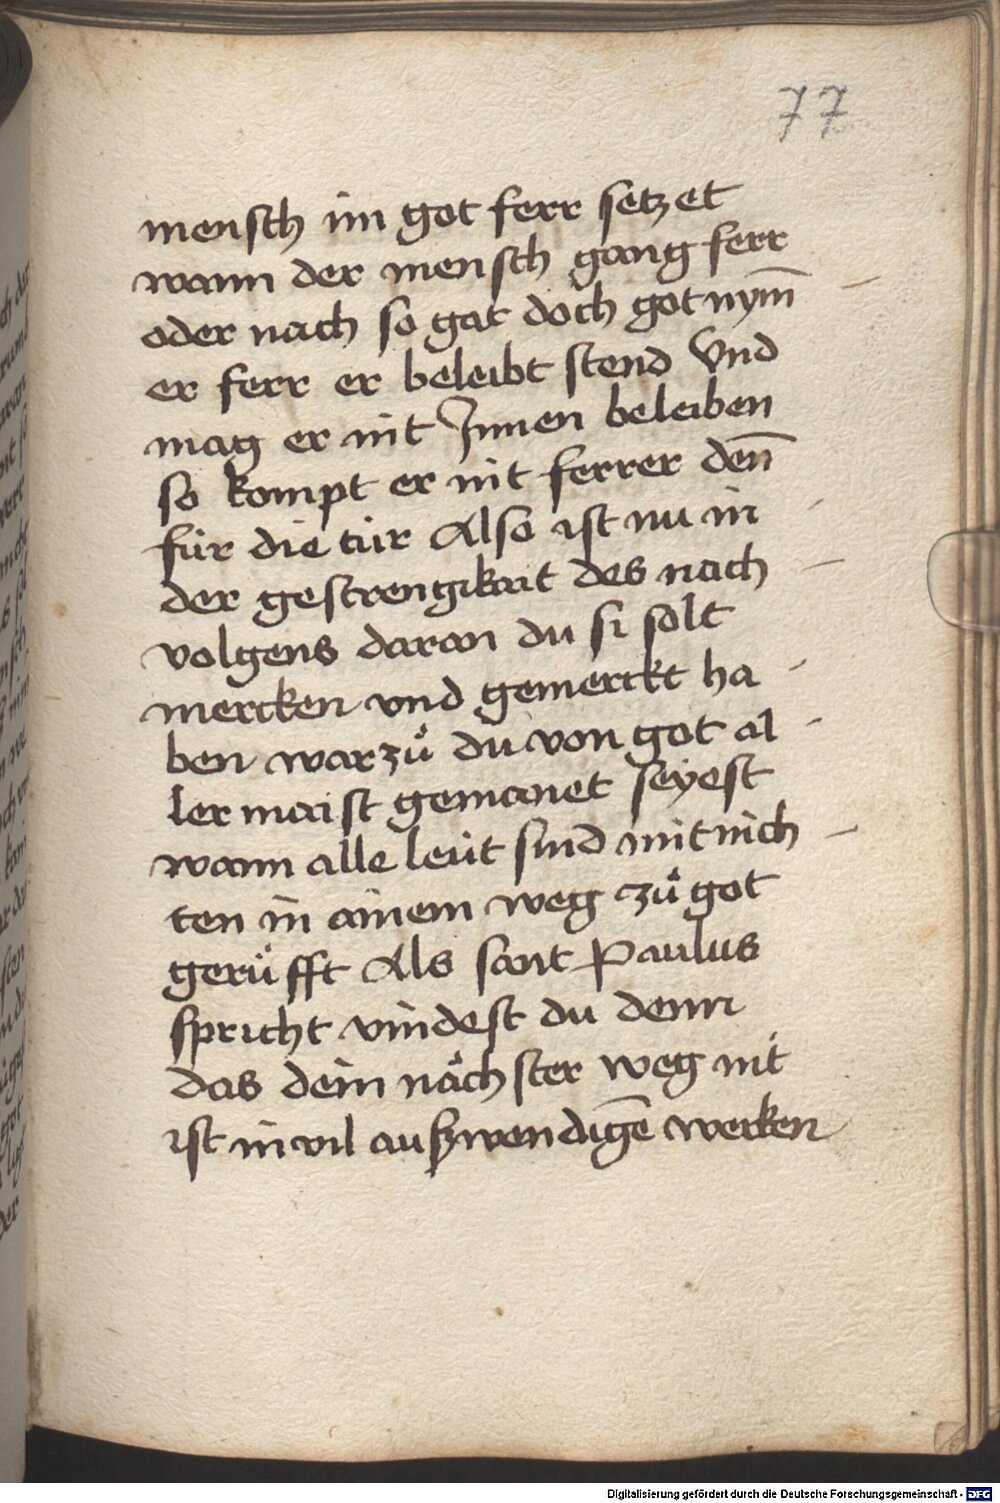 77
mensch im got ferr setzet
wann der mensch gang ferr
oder nach so gat doch got nym̄
er ferr er beleibt stend Vnd
mag er nit Jnnen beleiben
so kompt er nit ferrer den̄
für die tür Also ist nu in
der gestrengikait des nach
volgens daran du si solt
mercken vnd gemerckt ha
ben warzů du von got al
ler maist gemanet seyest
wann alle leüt sind mit nich
ten in ainem weg zů got
gerůfft Als sant Paulus
spricht vindest du denn
das dein nächster weg nit
ist in vil auszwendigē wercken
Digitalisierung gefördert durch die Deutsche Forschungsgemeinschaft - DFG